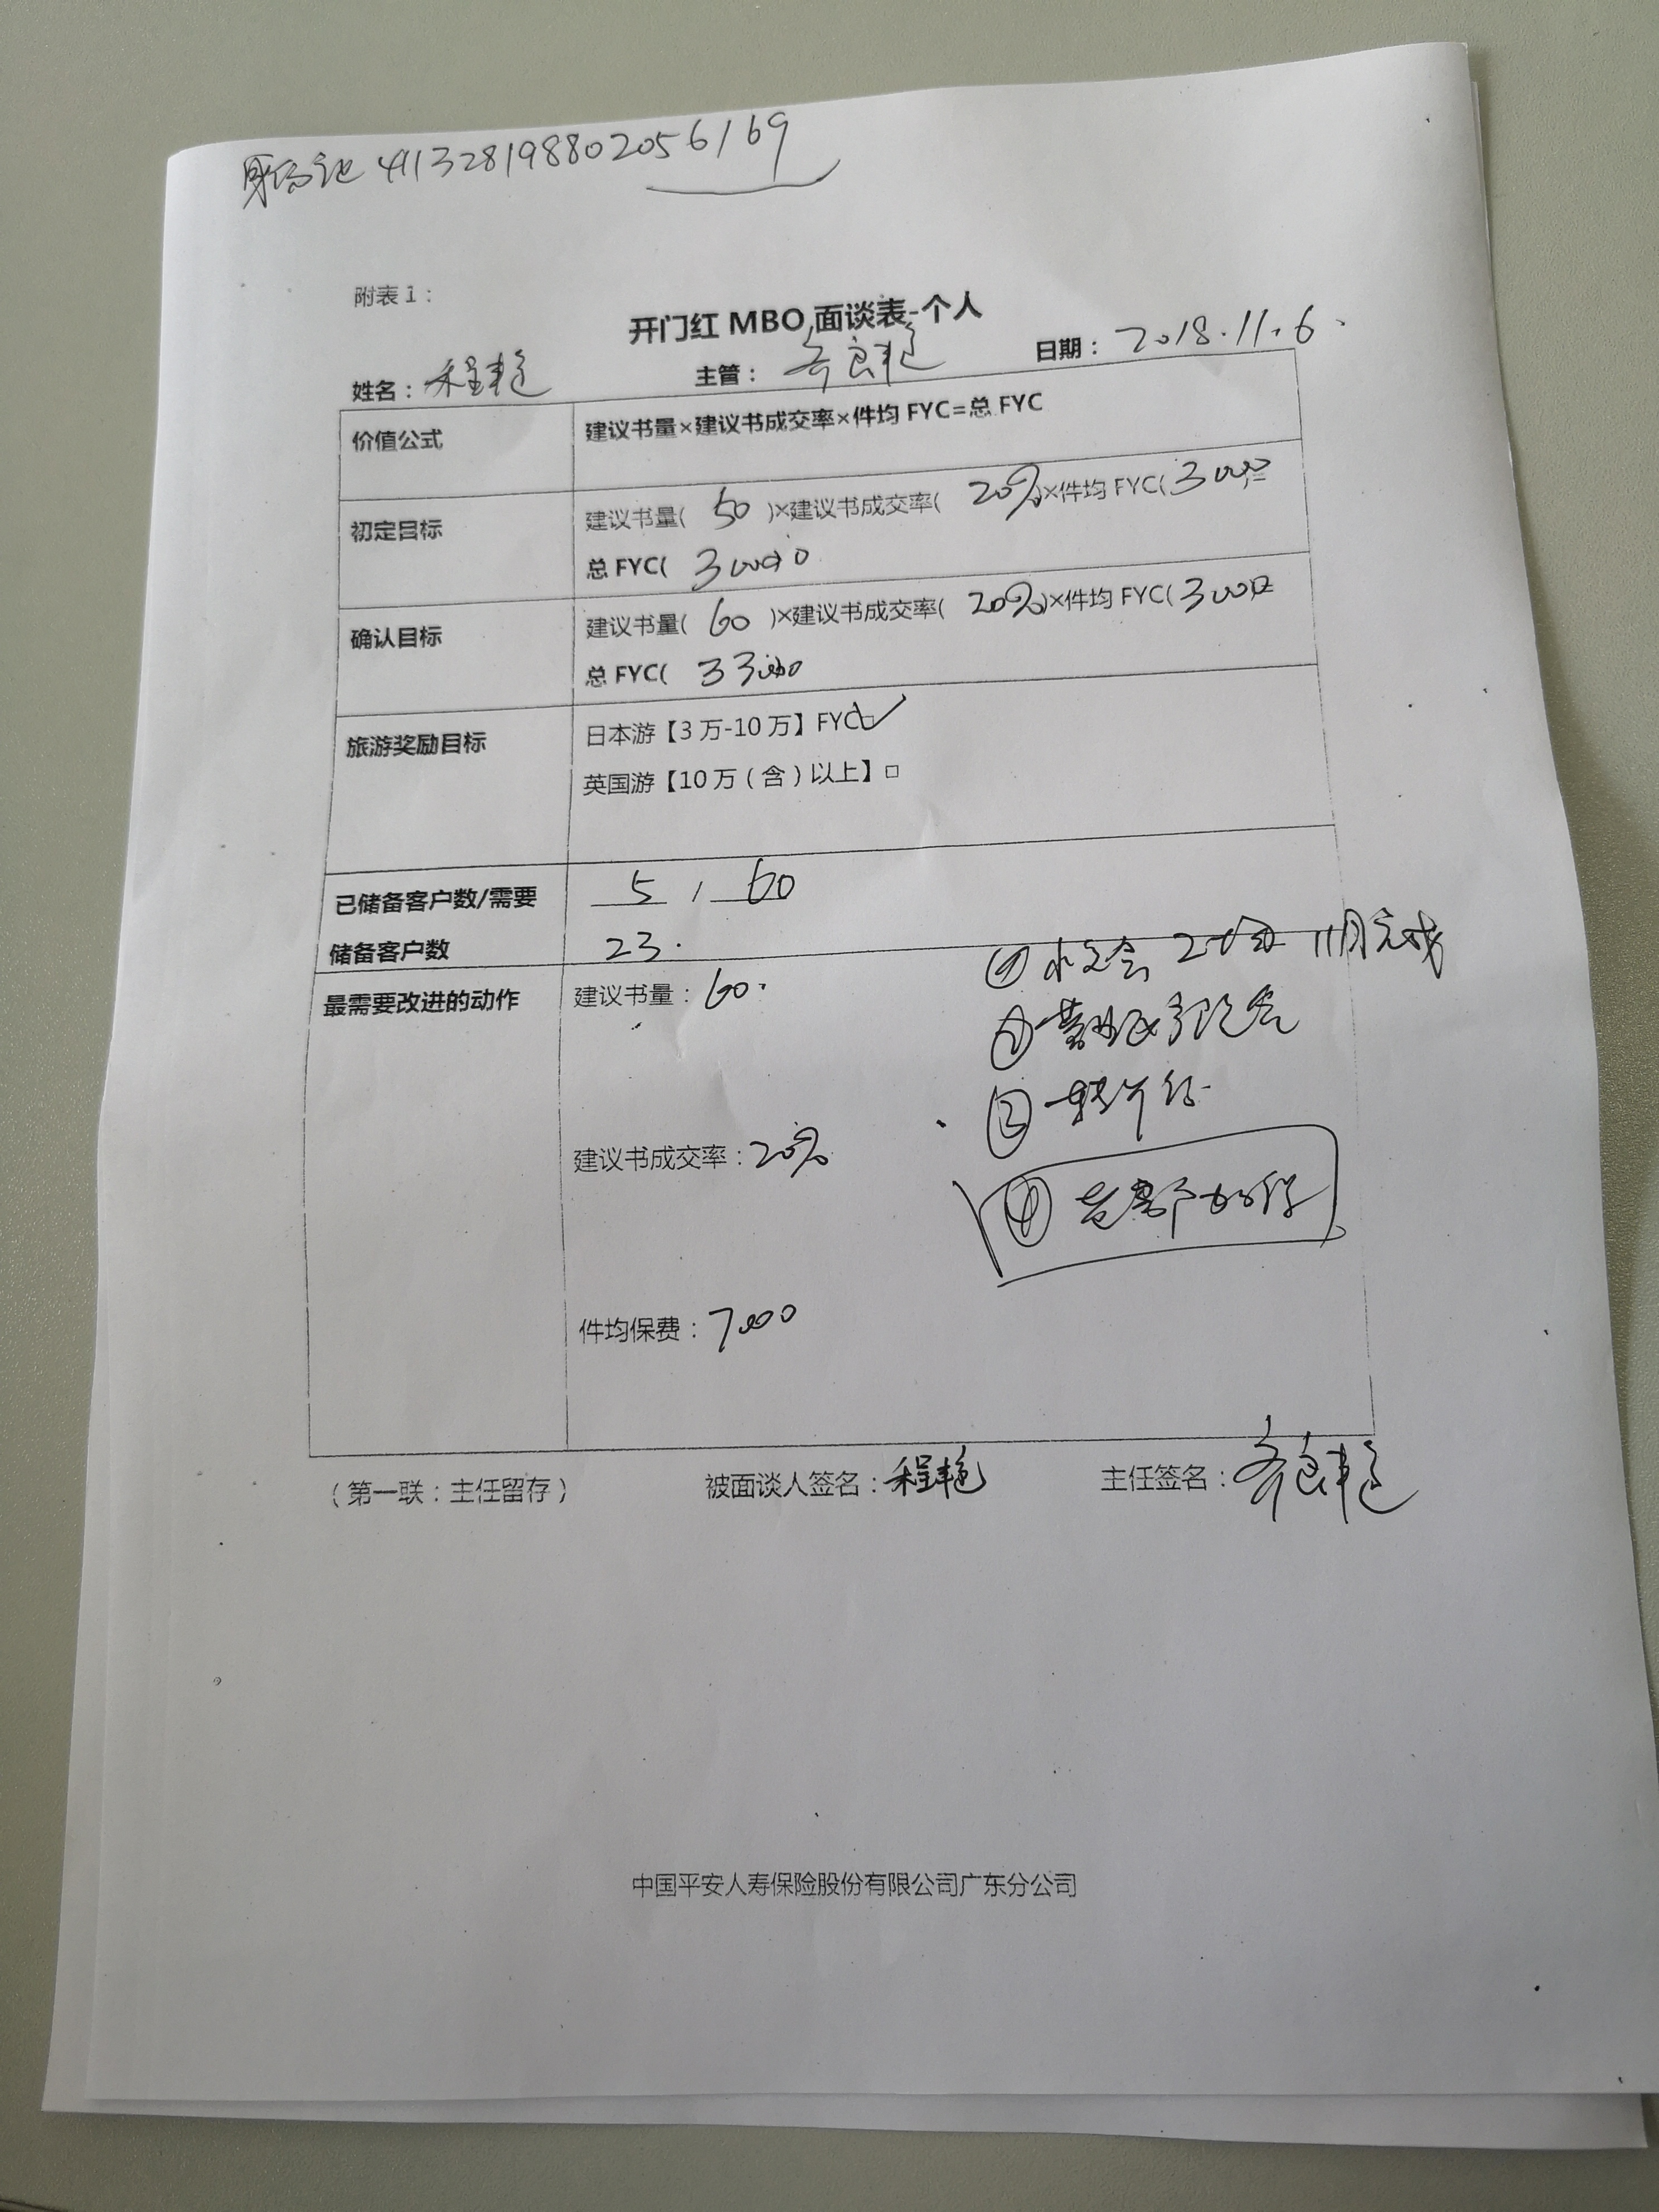 身份证 411328198802056169
附表1：
开门红 MBO 面谈表-个人
姓名：程艳 主管：齐良艳 日期：2018.11.6.
价值公式 建议书量×建议书成交率×件均 FYC=总 FYC
初定目标 建议书量( 50 )×建议书成交率( 20% )×件均 FYC( 3000 )=
总 FYC( 30000
确认目标 建议书量( 60 )×建议书成交率( 20% )×件均 FYC( 3000
总 FYC( 33000
旅游奖励目标 日本游【3 万-10 万】FYC□✓
英国游【10 万（含）以上】□
已储备客户数/需要 5 / 60
储备客户数 23.
最需要改进的动作 建议书量：60.
① 11月完成
②
③ 转介绍
建议书成交率：20%
④ 老客户加保
件均保费：7000
（第一联：主任留存） 被面谈人签名：程艳 主任签名：齐良艳
中国平安人寿保险股份有限公司广东分公司